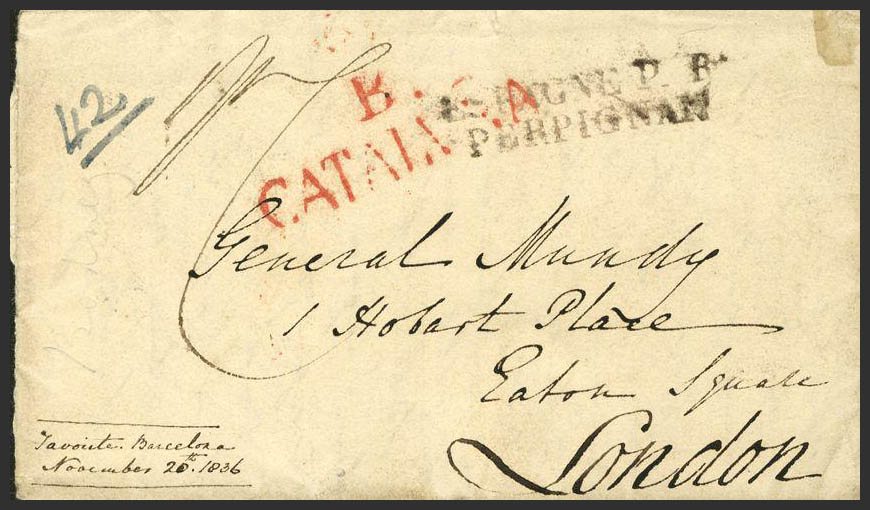 42
B.
CATALUÑA
ESPAGNE P. R.
PERPIGNAN
General Mundy
1 Hobart Place
Eaton Square
London
Favourite. Barcelona
November 20th. 1836